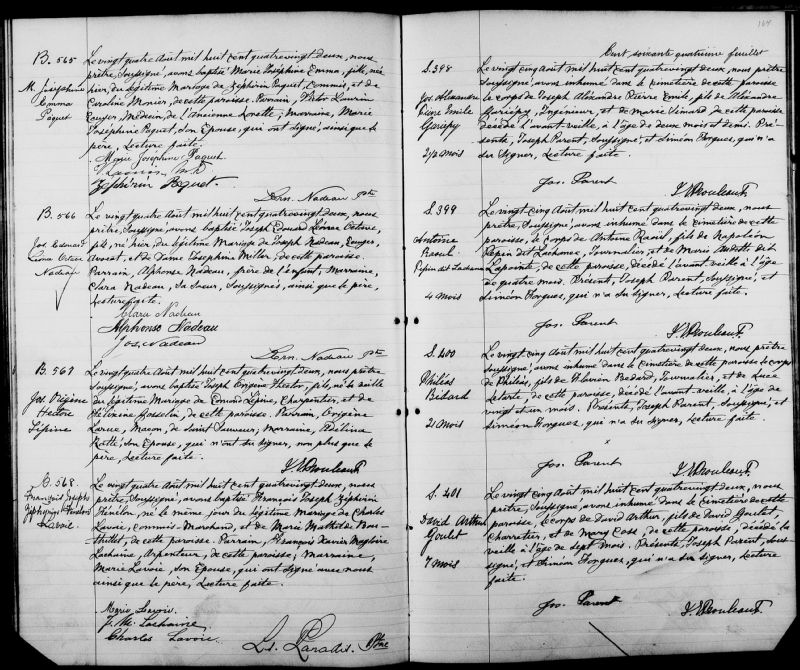 B. 565
M. Josephine
Emma
Paquet
Le vingt quatre Août mil huit cent quatrevingt deux, nous
prêtre, soussigné, avons baptisé Marie Josephine Emma, fille, née
hier, du légitime Mariage de Zéphirin Paquet, Commis, et de
Caroline Monier, de cette paroisse. Parrain, Laurin
Ecuyer, Médecin, de l'Ancienne Lorette; marraine, Marie
Josephine Paquet, son Epouse, qui ont signé, ainsi que le
père, Lecture faite.
Marie Josephine Paquet
Laurin M.D.
Zéphirin Paquet.
Born. Nadeau Ptre
B. 566
Jos. Edouard
Octave
Nadeau
Le vingt quatre Août mil huit cent quatrevingt deux, nous
prêtre, soussigné, avons baptisé Joseph Edouard Octave,
fils, né hier, du légitime Mariage de Joseph Nadeau, Ecuyer,
Avocat, et de Dame Josephine Miller, de cette paroisse.
Parrain, Alphonse Nadeau, frère de l'enfant, Marraine,
Clara Nadeau, sa soeur, soussignés, ainsi que le père,
Lecture faite.
Clara Nadeau
Alphonse Nadeau
Jos. Nadeau
Born. Nadeau Ptre
B. 567
Jos. Origène
Hector
Lépine
Le vingt quatre Août mil huit cent quatrevingt deux, nous prêtre
soussigné, avons baptisé Joseph Origène Hector, fils, né la veille
du légitime Mariage de Edmond Lépine, Charpentier, et de
Rosselin, de cette paroisse. Parrain, Origène
Larue, Maçon, de Saint Sauveur, marraine, Adelina
Ratté, son Epouse, qui n'ont su signer, non plus que le
père, Lecture faite.
Drouleaux
B. 568
François Joseph
Zéphirin Fénélon
Lavoie
Le vingt quatre Août mil huit cent quatrevingt deux, nous
prêtre, soussigné, avons baptisé François Joseph Zéphirin
Fénélon, né le même jour du légitime mariage de Charles
Lavoie, commis-Marchand, et de Marie Mathilde
de cette paroisse. Parrain, François Xavier Magloire
Lachaine, Arpenteur, de cette paroisse; marraine,
Marie Lavoie, son Epouse, qui ont signé avec nous
ainsi que le père, Lecture faite.
Marie Lavoie.
Lachaine
Charles Lavoie
Ls. Paradis. Ptre
164
Cent soixante quatrième feuillet
S. 398
Jos. Alexandre
Pierre Emile
Gariépy
2½ mois
Le vingt cinq Août mil huit cent quatrevingt deux, nous prêtre
soussigné, avons inhumé dans le cimetière de cette paroisse
le corps de Joseph Alexandre Pierre Emile, fils de Alexandre
Gariépy, Ingénieur, et de Marie Simard, de cette paroisse
décédé l'avant veille, à l'âge de deux mois et demi. Pré-
sents, Joseph Parent, soussigné, et Siméon Forgues, qui n'a
su signer, Lecture faite.
Jos. Parent
Drouleaux
S. 399
Antoine
Raoul
Pepin dit Lachance
4 mois
Le vingt cinq Août mil huit cent quatrevingt deux, nous
prêtre, soussigné, avons inhumé dans le cimetière de cette
paroisse, le corps de Antoine Raoul, fils de Napoléon
Pepin dit Lachance, Journalier, et de Marie Audette dit
Lapointe, de cette paroisse, décédé l'avant veille à l'âge
de quatre mois. Présent, Joseph Parent, soussigné, et
Siméon Forgues, qui n'a su signer, Lecture faite.
Jos. Parent
Drouleaux
S. 400
Philéas
Bédard
21 mois
Le vingt cinq Août mil huit cent quatrevingt deux, nous prêtre
soussigné, avons inhumé dans le cimetière de cette paroisse le corps
de Philéas, fils de Flavien Bédard, Journalier, et de Luce
Letarte, de cette paroisse, décédé l'avant veille, à l'âge de
vingt et un mois. Présents, Joseph Parent, soussigné, et
Siméon Forgues, qui n'a su signer, Lecture faite.
Jos. Parent
Drouleaux
S. 401
David Arthur
Goulet
7 mois
Le vingt cinq Août mil huit cent quatrevingt deux, nous
prêtre, soussigné, avons inhumé dans le cimetière de cette
paroisse, le corps de David Arthur, fils de David Goulet,
Charretier, et de Mary Coss, de cette paroisse, décédé la
veille à l'âge de sept mois. Présents, Joseph Parent, sous-
signé, et Siméon Forgues, qui n'a su signer, Lecture
faite.
Jos. Parent
Drouleaux